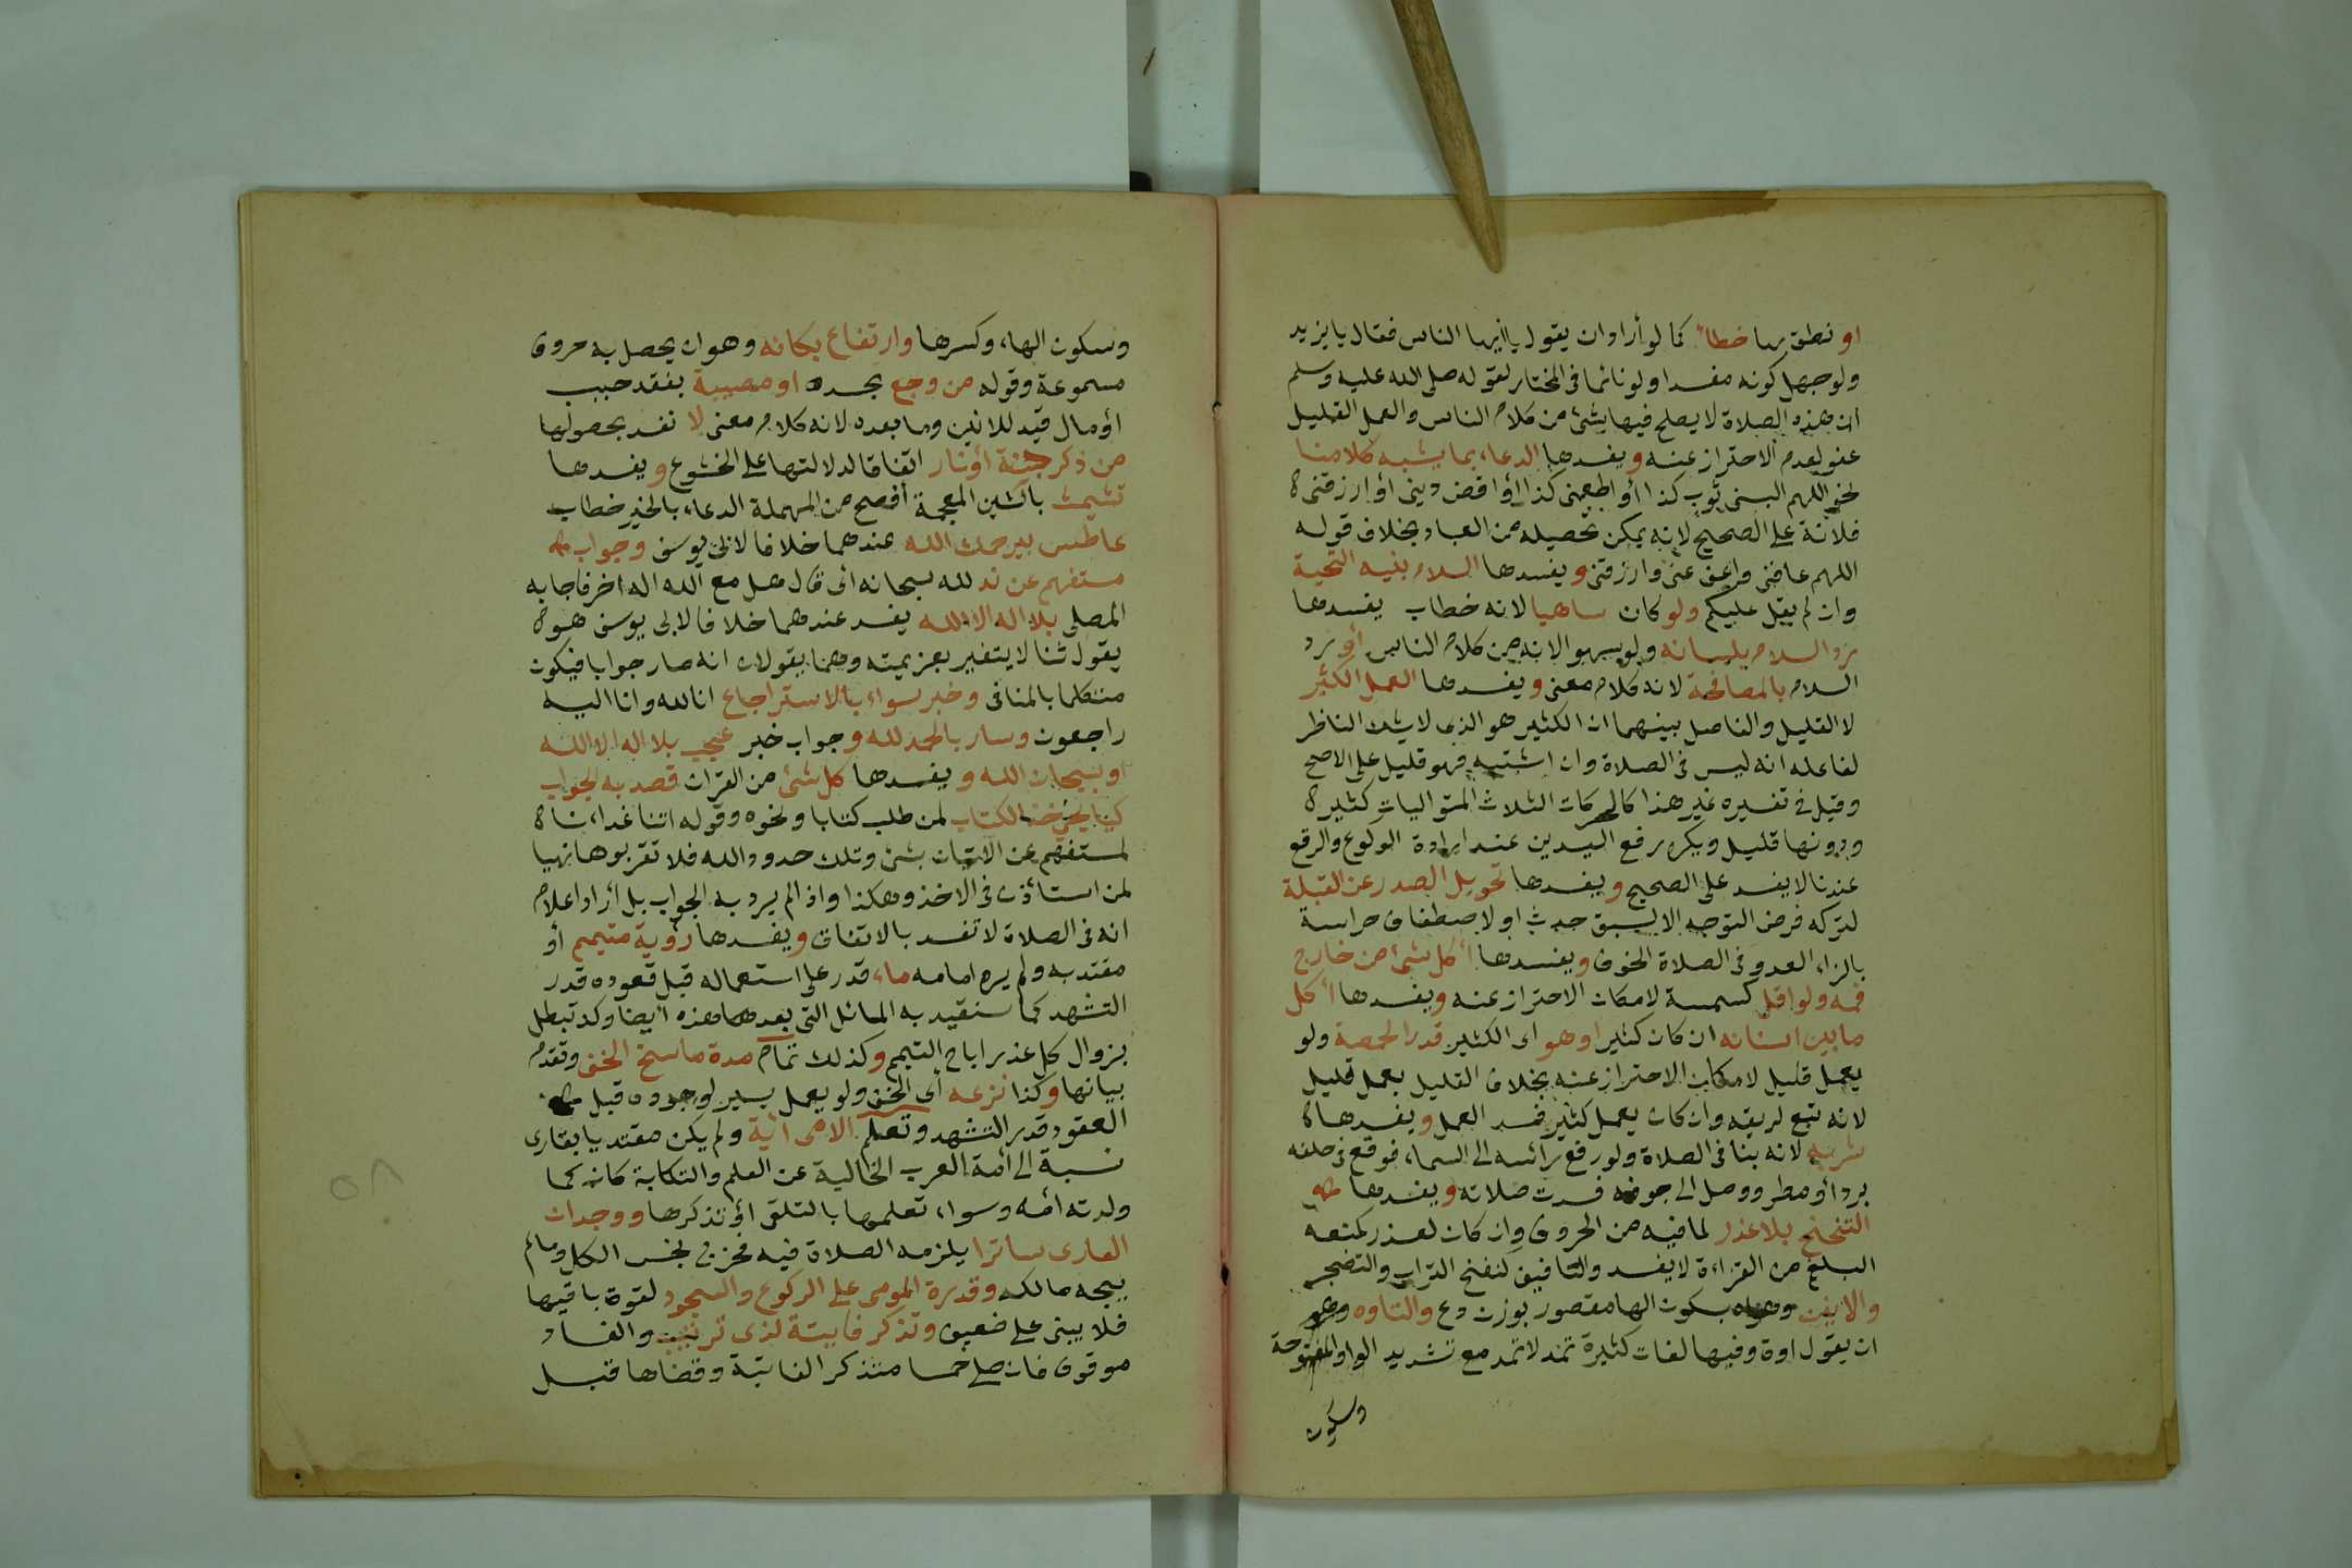 او نطق بها خطأ كما لو أراد ان يقول يا ايها الناس فقال يا يزيد
ولو جهل كونه مفسدا ولو نائما فى المختار لقوله صلى الله عليه وسلم
ان هذه الصلاة لا يصلح فيها شئ من كلام الناس والعمل القليل
عفو لعدم الاحتراز عنه ويفسدها الدعاء بما يشبه كلامنا
نحو اللهم البسنى ثوب كذا أو اطعمنى كذا أو اقض دينى أو ارزقنى
فلانة على الصحيح لانه يمكن تحصيله من العباد بخلاف قوله
اللهم عافنى واعف عنى وارزقنى ويفسدها السلام بنيه التحية
وان لم يقل عليكم ولو كان ساهيا لانه خطاب يفسدها
رد السلام بلسانه ولو سهوا لانه من كلام الناس أو رد
السلام بالمصافحة لانه كلام معنى ويفسدها العمل الكثير
لا القليل والفاصل بينهما ان الكثير هو الذى لا يشك الناظر
لفاعله انه ليس فى الصلاة وان اشتبه فهو قليل على الاصح
وقيل فى تفسيره غير هذا كالحركات الثلاث المتواليات كثيرة
ودونها قليل ويكره رفع اليدين عند ارادة الركوع والرفع
عندنا لا يفسد على الصحيح ويفسدها تحويل الصدر عن القبلة
لتركه فرض التوجه الا لسبق حدث او لاصطفاف حراسة
بازاء العدو فى الصلاة الخوف ويفسدها أكل شئ من خارج
فمه ولو اقل كسمسة لامكان الاحتراز عنه ويفسدها أكل
ما بين اسنانه ان كان كثيرا وهو اى الكثير قدر الحمصة ولو
بعمل قليل لامكان الاحتراز عنه بخلاف القليل بعمل قليل
لانه تبع لريقه وان كان بعمل كثير فسد العمل ويفسدها
شربه لانه ينافى الصلاة ولو رفع رأسه الى السماء فوقع فى حلقه
برد أو مطر ووصل الى جوفه فسدت صلاته ويفسدها
التنحنح بلا عذر لما فيه من الحروف وان كان لعذر كمنعه
البلغم من القراءة لا يفسد والتافيف كنفخ التراب والتضجر
والانين وهواه بسكون الها مقصور بوزن دع والتاوه وهو
ان يقول اوه وفيها لغات كثيرة تمد لا تمد مع تشديد الواو المفتوحة
وسكون
وسكون الهاء وكسرها وارتفاع بكائه وهو ان يحصل به حروف
مسموعة وقوله من وجع بجسده او مصيبة بفقد حبيب
أو مال قيد للانين وما بعده لانه كلام معنى لا تفسد بحصولها
من ذكر جنة أو نار اتفاقا لدلالتها على الخشوع ويفسدها
تشميت بالشين المعجمة أفصح من المهملة الدعاء بالخير خطاب
عاطس بيرحمك الله عندهما خلافا لابى يوسف وجواب
مستفهم عن ند لله سبحانه اى قال هل مع الله اله اخر فاجابه
المصلى بلا اله الا الله يفسد عندهما خلافا لابى يوسف هو
يقول ثنا لا يتغير بعزيمته وهما يقولان انه صار جوابا فيكون
متكلما بالمنافى وخبر سواء بالاسترجاع انا لله وانا اليه
راجعون وسار بالحمد لله وجواب خبر عجيب بلا اله الا الله
او بسبحان الله ويفسدها كل شئ من القرآن قصد به الجواب
كيا يحيى خذ الكتاب لمن طلب كتابا ونحوه وقوله اتنا غداءنا
لمستفهم عن الاتيان بشئ وتلك حدود الله فلا تقربوها نهيا
لمن استأذن فى الاخذ وهكذا واذا لم يرد به الجواب بل أراد اعلام
انه فى الصلاة لا تفسد بالاتفاق ويفسدها رؤية متيمم أو
مقتد به ولم يره امامه ماء قدر على استعماله قبل قعوده قدر
التشهد كما سنقيد به المسائل التى بعدها وهذه أيضا وكذ تبطل
بزوال كل عذر اباح التيمم وكذلك تمام مدة ماسح الخف وتقدم
بيانها وكذا نزعه أى الخف ولو بعمل يسير لوجوده قبل
العقود قدر التشهد وتعلم الامى أية ولم يكن مقتديا بقارى
نسبة الى أمة العرب الخالية عن العلم والتكابة كانه كما
ولدته أمه وسواء تعلمها بالتلقى أو تذكرها ووجدان
العارى ساترا يلزمه الصلاة فيه فخرج نجس الكل وما لم
يبحه مالكه وقدرة المومى على الركوع والسجود لقوة باقيها
فلا يبنى على ضعيف وتذكر فايتة لذى ترتيب والفساد
موقوف فان صلى خمسا متذكر الفائتة وقضاها قبل
٥٨